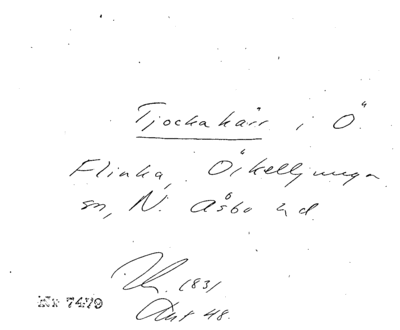 Tjockakärr i Ö
Flinka, Örkelljunga
sn, N. Åsbo hd.
1831
Akt 48.
Nr 7479